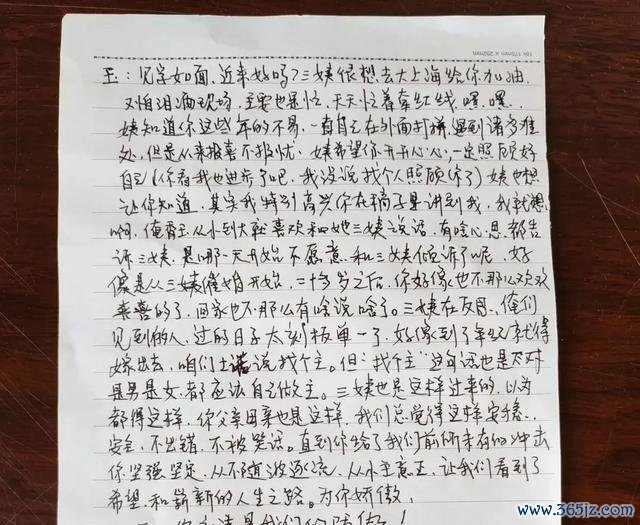 16k 175mm × 252mm
玉：见字如面，近来好吗？三姨很想去大上海给你加油，
又怕泪洒现场，主要也是忙，天天忙着牵红线，嘿，嘿..
姨知道你这些年的不易，一直自己在外面打拼，遇到诸多难
处，但是从来报喜不报忧，姨希望你开开心心，一定照顾好
自己（你看我也进步了吧，我没说找个人照顾你了）姨也想
让你知道，其实我特别高兴你在稿子里讲到我，我就想
啊，俺 玉从小到大就喜欢和她三姨说话，有啥心思都告
诉三姨，是哪一天开始不愿意和三姨倾诉了呢，好
像是从三姨催婚开始，二十多岁之后，你好像也不那么欢欢
喜喜的了，回家也不那么有啥说啥了。三姨在反思，俺们
见到的人，过的日子太刻板单一了，好像到了年纪就得
嫁出去，咱们土话说找个主。但“找个主”这句话也是不对
是男是女，都应该自己做主。三姨也是这样过来的，以为
都得这样，你父亲母亲也是这样，我们总觉得这样安稳..
安全，不出错，不被笑话。直到你给了我们前所未有的冲击
你坚强坚定，从不随波逐流，从小主意正，让我们看到了
希望，和崭新的人生之路。为你骄傲，
是我们的骄傲！
www.365jz.com